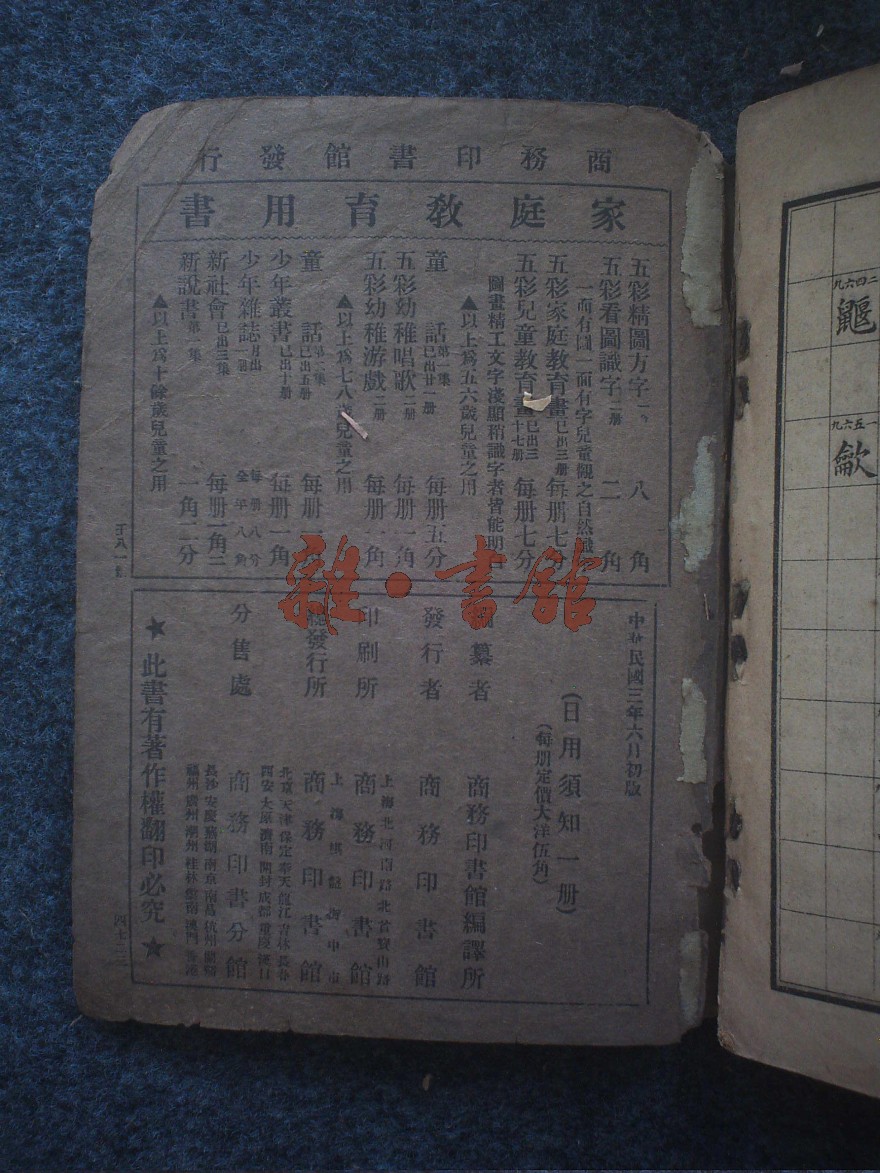 商務印書館發行
家庭教育用書
五彩精圖方字 八角
五彩看圖識字 二册 二角
一面有圖一面有字兒童觀之自然識
五彩家庭教育畫 已出三册 每册七分
五彩兒童教育畫 已出三十七册 每册七分
圖畫精工文字淺顯稍識字者皆能明
▲以上爲五六歲兒童之用
童話 第一集 已出廿一册 每册五分
五彩幼稚唱歌 二册 每册一角
五彩幼稚游戲 二册 每册一角
▲以上爲七八 兒童之用
童話 第二集 已出五册 每册一角
少年叢書 已出十册 每册一角
少年雜誌 月出一册 每册八分 全年八角
新社會 已出三集 每册一角二
新說書 第一集 一角二分
▲以上爲十餘歲兒童之用
中華民國三年六月初版
(日用須知一册)
(每册定價大洋伍角)
編纂者 商務印書館編譯所
發行者 商務印書館
上海北河南路北首寶山路
印刷所 商務印書館
上海棋盤街中市
總發行所 商務印書館
北京天津保定奉天龍江吉林長春
西安太原濟南開封成都重慶漢口
分售處 商務印書分館
長沙安慶蕪湖南京南昌杭州
福州廣州潮州桂林雲南澳門香港
★此書有著作權翻印必究★
四十三
雜·書館
二四六九
鼴
一五六九
龡